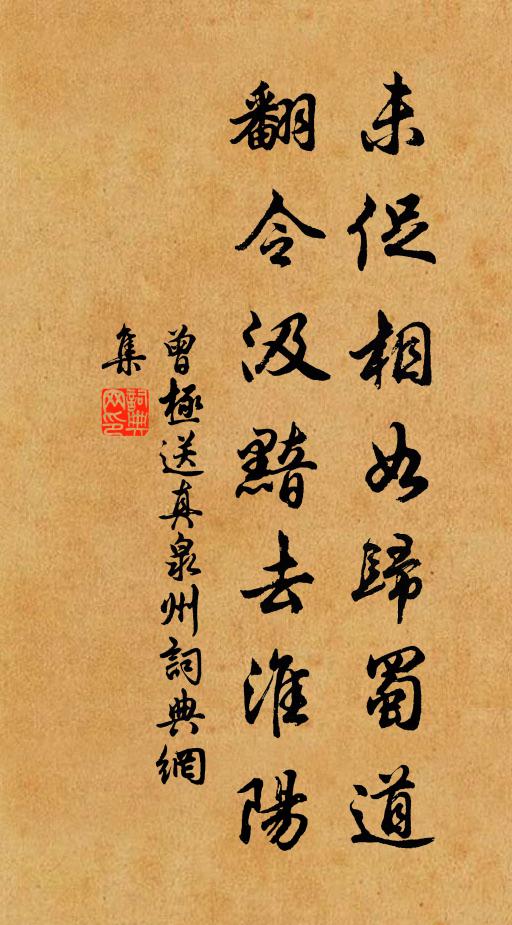 未促相如歸蜀道
翻令汲黯去淮陽
曾極送真泉州詞典網
集
詞典網印